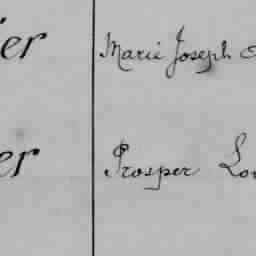 er Marie Joseph
er Prosper Lou